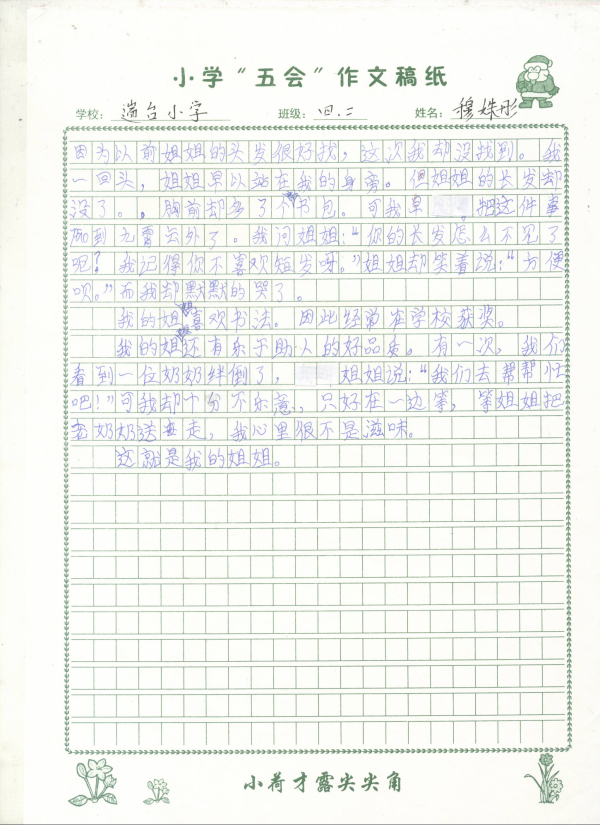 小学“五会”作文稿纸
学校：端台小学 班级：四.二 姓名：穆姝彤
因为以前姐姐的头发很好找，这次我却没找到。我
一回头，姐姐早以站在我的身旁。但姐姐的长发却
没了。，胸前却多了个书包。可我早 把这件事
抛到九霄云外了。我问姐姐：“你的长发怎么不见了
呢？我记得你不喜欢短发呀。”姐姐却笑着说：“方便
呗。”而我却默默的哭了。
我的姐姐喜欢书法。因此经常在学校获奖。
我的姐姐还有乐于助人的好品质。有一次，我们
看到一位奶奶绊倒了， 姐姐说：“我们去帮帮忙
吧！”可我却十分不乐意，只好在一边等，等姐姐把
老奶奶送走，我心里很不是滋味。
这就是我的姐姐。
小荷才露尖尖角